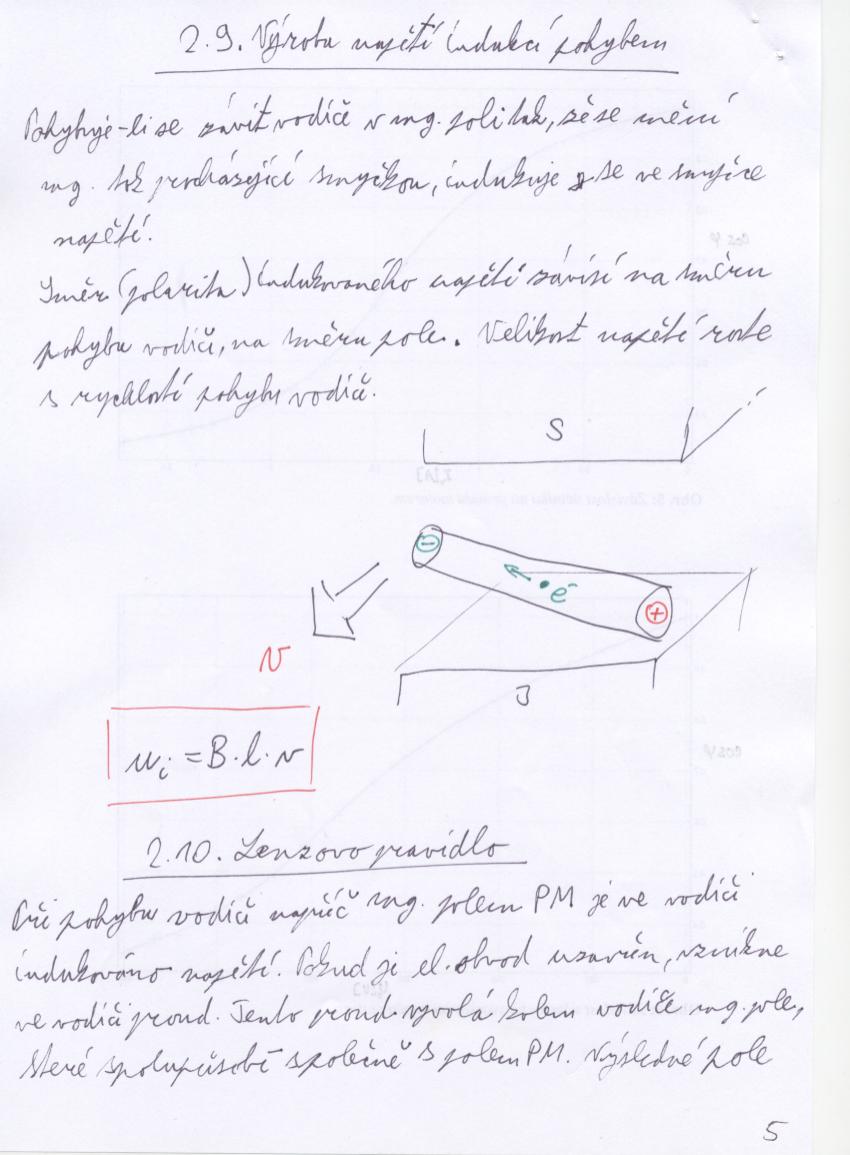 2.9. Výroba napětí indukcí pohybem
Pohybuje-li se závit vodič v mg. poli tak, že se mění
mg. tok procházející smyčkou, indukuje se ve smyčce
napětí.
Směr (polarita) indukovaného napětí závisí na směru
pohybu vodiči, na směru pole. Velikost napětí roste
s rychlostí pohybu vodič.
S
⊖
e⁻
⊕
v
J
u_i = B·l·v
2.10. Lenzovo pravidlo
Při pohybu vodiči napříč mg. polem PM je ve vodiči
indukováno napětí. Pokud je el. obvod uzavřen, vznikne
ve vodiči proud. Tento proud vyvolá kolem vodiče mg. pole,
které spolupůsobí společně s polem PM. Výsledné pole
5